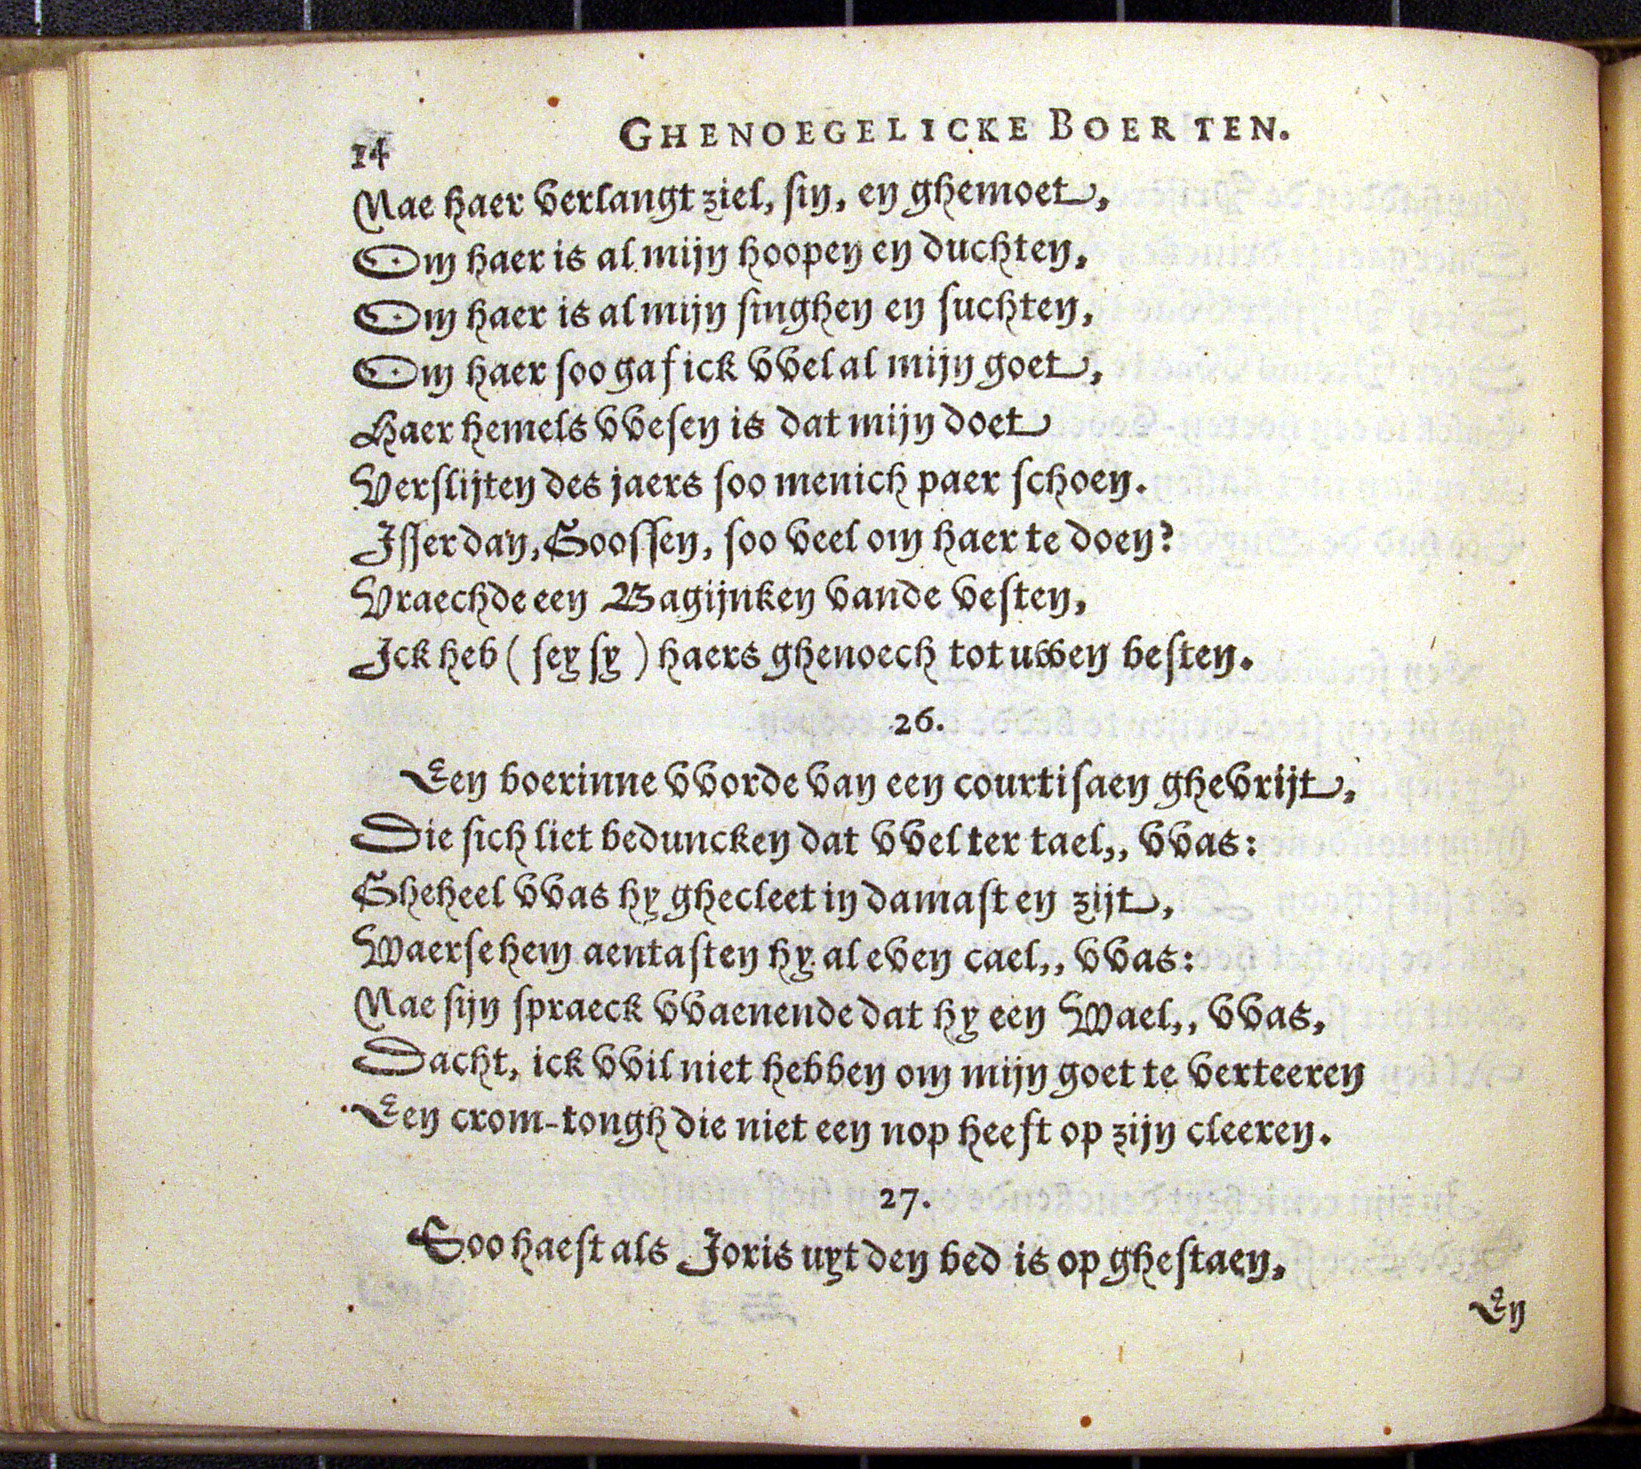 14
GHENOEGELICKE BOERTEN.
Nae haer verlangt ziel, sin, en ghemoet,
Om haer is al mijn hoopen en duchten,
Om haer is al mijn singhen en suchten,
Om haer soo gaf ick vvel al mijn goet,
Haer hemels vvesen is dat mijn doet
Verslijten des jaers soo menich paer schoen.
Isser dan, Goossen, soo veel om haer te doen?
Vraechde een Bagijnken vande vesten,
Ick heb (sey sy) haers ghenoech tot uwen besten.
26.
Een boerinne vvorde van een courtisaen ghevrijt,
Die sich liet beduncken dat vvel ter tael,, vvas:
Gheheel vvas hy ghecleet in damast en zijt,
Waerse hem aentasten hy al even cael,, vvas:
Nae sijn spraeck vvaenende dat hy een Wael,, vvas,
Dacht, ick vvil niet hebben om mijn goet te verteeren
Een crom-tongh die niet een nop heeft op zijn cleeren.
27.
Soo haest als Joris uyt den bed is op ghestaen,
En